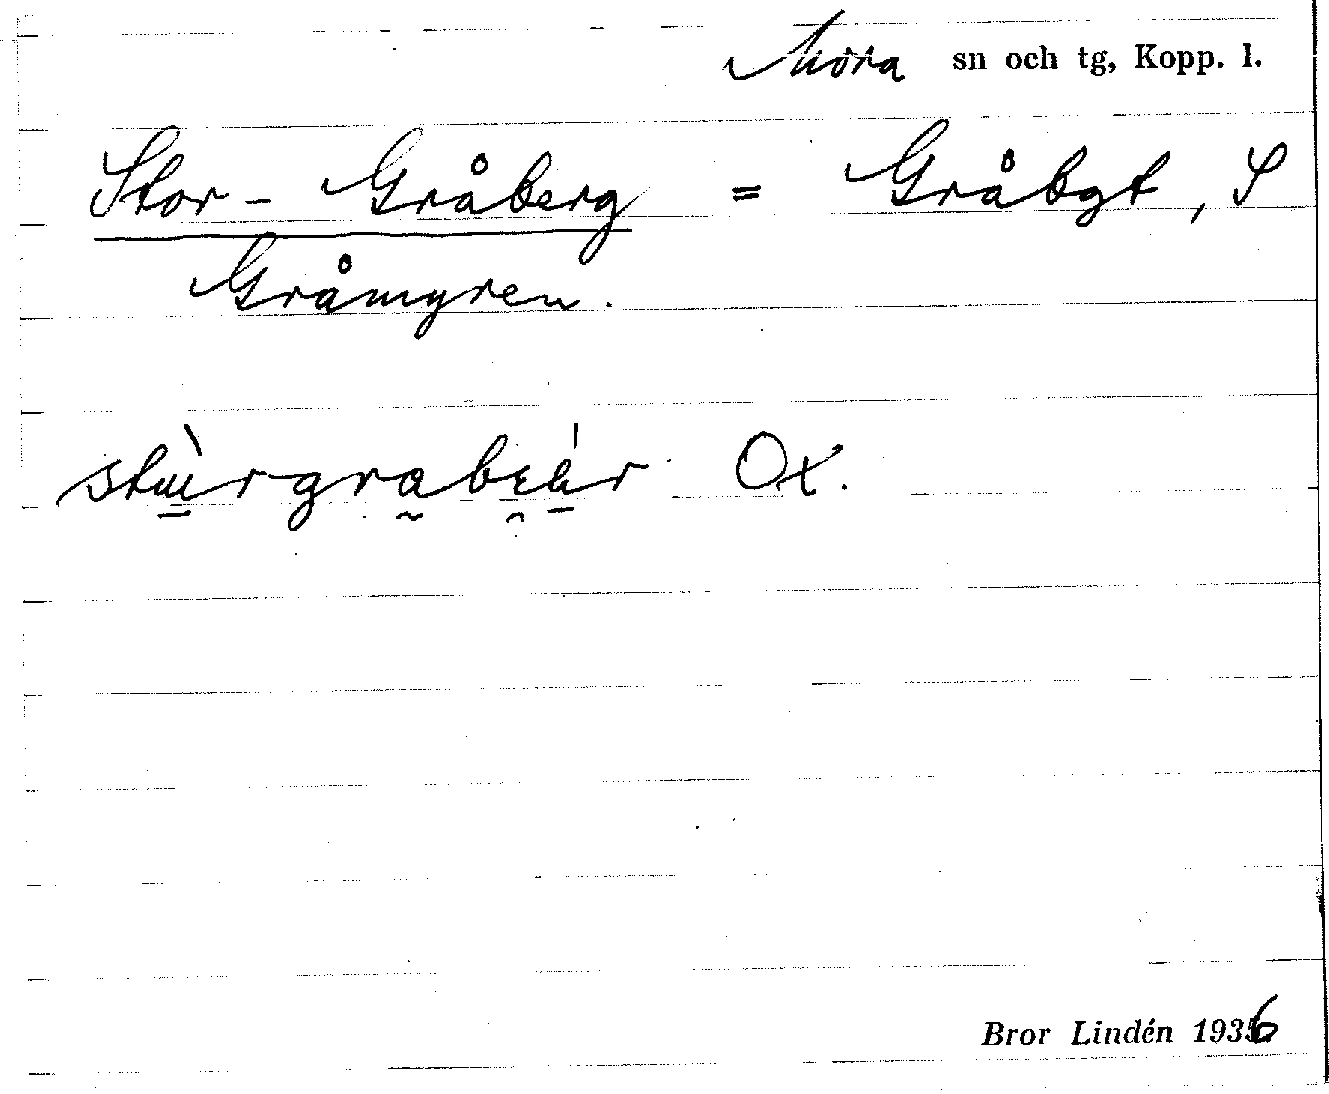 Mora sn och tg, Kopp. l.
Stor-Gråberg = Gråbgt, S
Gråmyren.
Ox.
Bror Lindén 1936